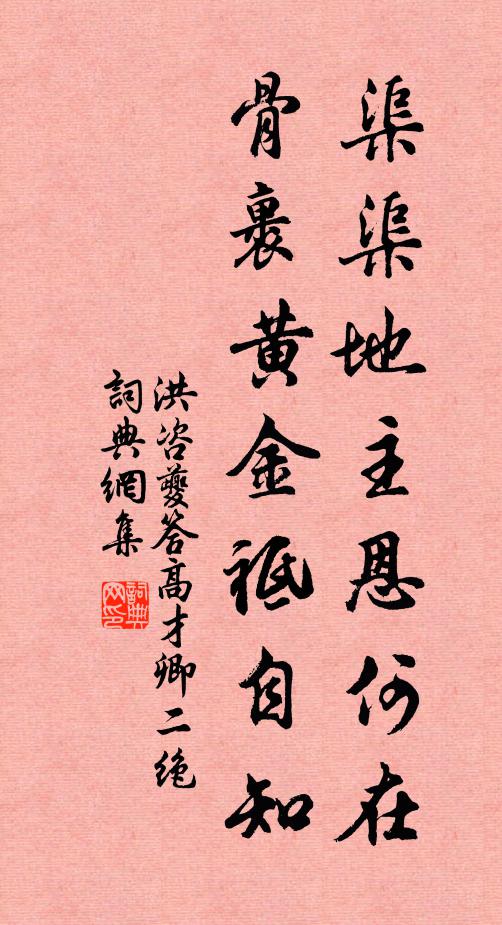 渠渠地主恩何在
骨裏黄金祗自知
洪咨夔答高才卿二絶
詞典網集
詞典网印